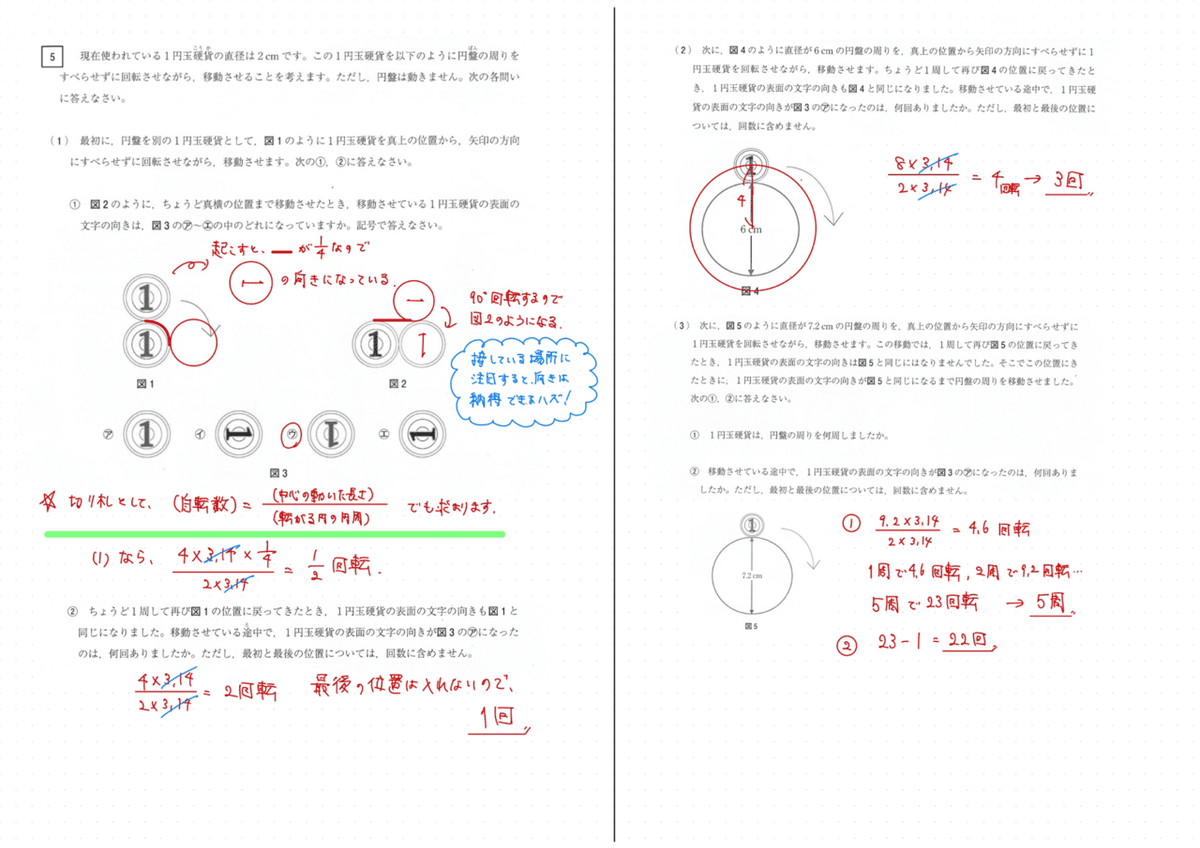 5
現在使われている1円玉硬貨の直径は2cmです。この1円玉硬貨を以下のように円盤の周りを
すべらせずに回転させながら，移動させることを考えます。ただし，円盤は動きません。次の各問い
に答えなさい。
（1） 最初に，円盤を別の1円玉硬貨として，図1のように1円玉硬貨を真上の位置から，矢印の方向
にすべらせずに回転させながら，移動させます。次の①，②に答えなさい。
① 図2のように，ちょうど真横の位置まで移動させたとき，移動させている1円玉硬貨の表面の
文字の向きは，図3の㋐～㋓の中のどれになっていますか。記号で答えなさい。
起こすと、 が1/4なので
の向きになっている.
90°回転するので
図2のようになる.
図1
図2
接している場所に
注目すると、向きは
納得できるハズ!
㋐ 1 ㋑ 1 ㋒ 1 ㋓ 1
図3
☆ 切り札として、(自転数) = (中心の動いた長さ)/(転がる円の円周) でも求まります.
(1) なら、 4×3.14×1/4 / 2×3.14 = 1/2 回転.
② ちょうど1周して再び図1の位置に戻ってきたとき，1円玉硬貨の表面の文字の向きも図1と
同じになりました。移動させている途中で，1円玉硬貨の表面の文字の向きが図3の㋐になった
のは，何回ありましたか。ただし，最初と最後の位置については，回数に含めません。
4×3.14 / 2×3.14 = 2回転 最後の位置は入れないので、
1回
（2） 次に，図4のように直径が6cmの円盤の周りを，真上の位置から矢印の方向にすべらせずに1
円玉硬貨を回転させながら，移動させます。ちょうど1周して再び図4の位置に戻ってきたと
き，1円玉硬貨の表面の文字の向きも図4と同じになりました。移動させている途中で，1円玉硬
貨の表面の文字の向きが図3の㋐になったのは，何回ありましたか。ただし，最初と最後の位置に
ついては，回数に含めません。
8×3.14 / 2×3.14 = 4回転 → 3回
4
6 cm
図4
（3） 次に，図5のように直径が7.2cmの円盤の周りを，真上の位置から矢印の方向にすべらせずに
1円玉硬貨を回転させながら，移動させます。この移動では，1周して再び図5の位置に戻ってき
たとき，1円玉硬貨の表面の文字の向きは図5と同じにはなりませんでした。そこでこの位置にき
たときに，1円玉硬貨の表面の文字の向きが図5と同じになるまで円盤の周りを移動させました。
次の①，②に答えなさい。
① 1円玉硬貨は，円盤の周りを何周しましたか。
② 移動させている途中で，1円玉硬貨の表面の文字の向きが図3の㋐になったのは，何回ありま
したか。ただし，最初と最後の位置については，回数に含めません。
7.2 cm
図5
① 9.2×3.14 / 2×3.14 = 4.6 回転
1周で4.6回転, 2周で9.2回転…
5周で23回転 → 5周
② 23-1 = 22回